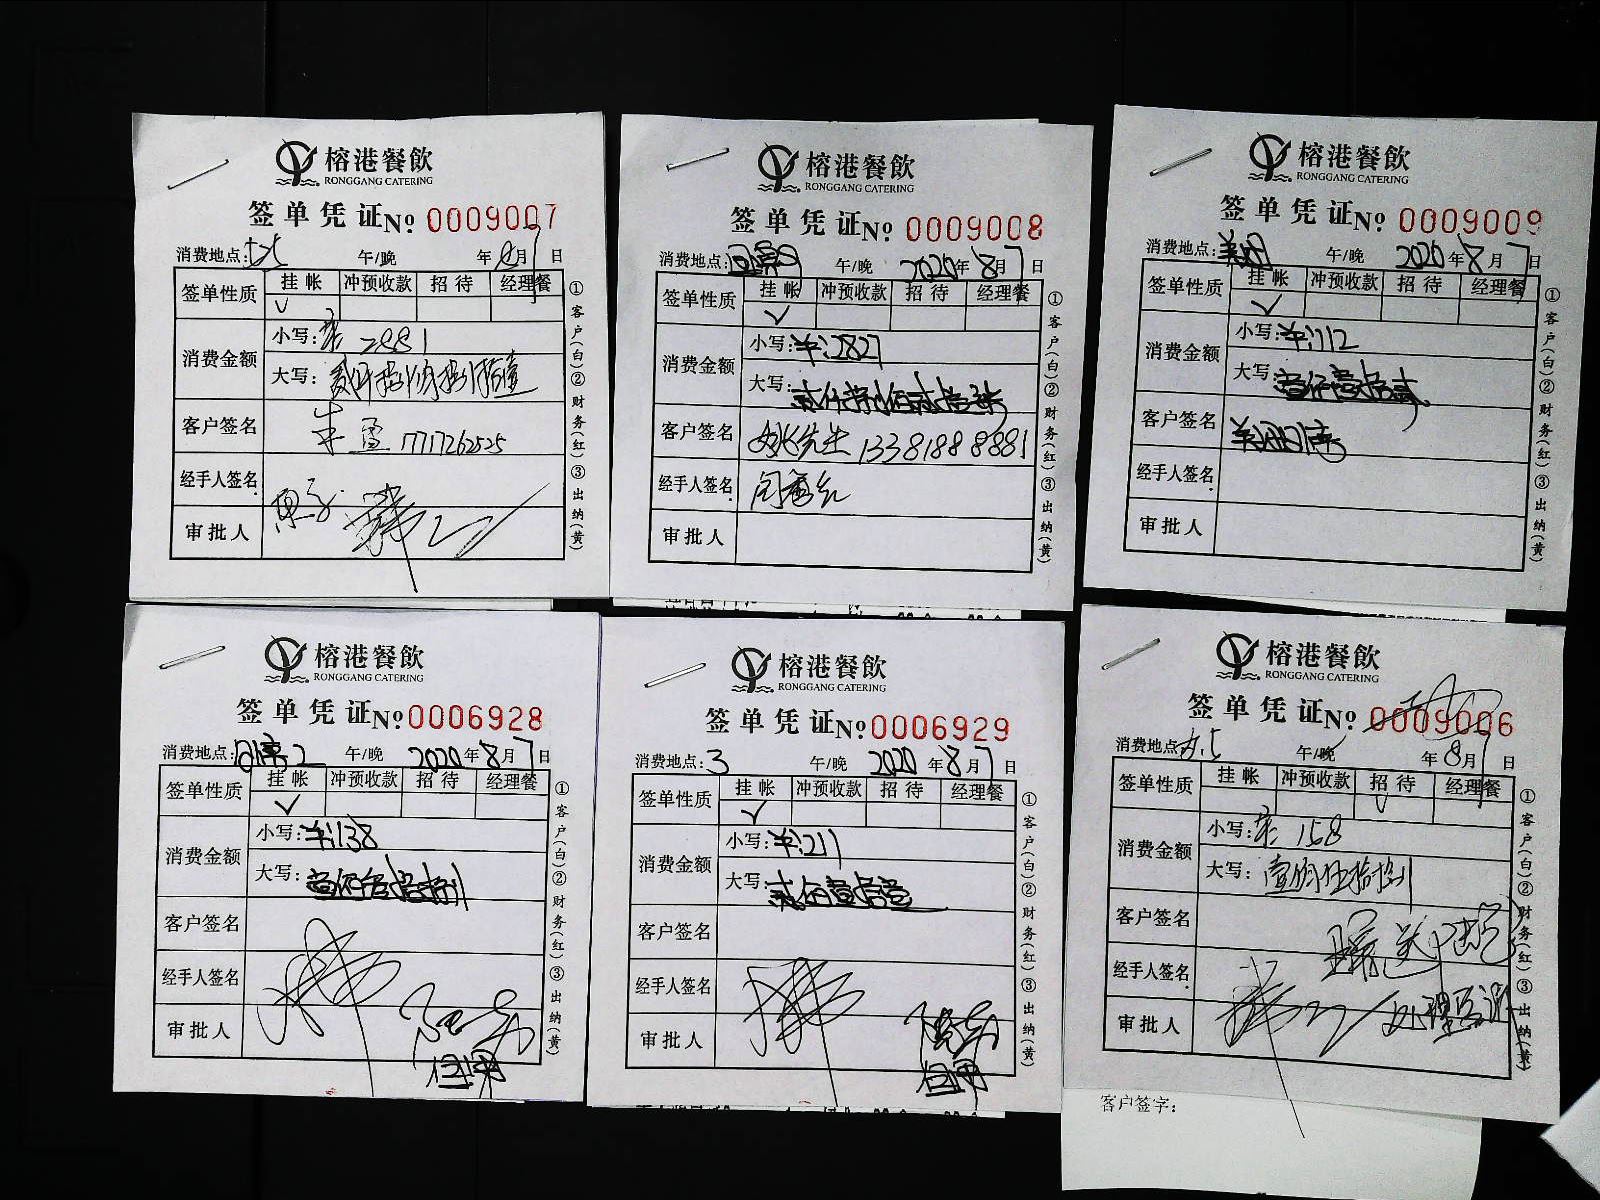 榕港餐飲
RONGGANG CATERING
签单凭证 No 0009007
消费地点: 午/晚 年8月7日
签单性质 挂帐 冲预收款 招待 经理餐
✓
消费金额 小写: 2881
大写: 贰仟捌佰捌拾壹
客户签名 朱雪 1717262525
经手人签名
审批人
①客户(白)②财务(红)③出纳(黄)
榕港餐飲
RONGGANG CATERING
签单凭证 No 0009008
消费地点: 午/晚 2020年8月7日
签单性质 挂帐 冲预收款 招待 经理餐
✓
消费金额 小写: ¥:2827
大写: 贰仟捌佰贰拾柒
客户签名 姚先生 13381888881
经手人签名 闵香红
审批人
①客户(白)②财务(红)③出纳(黄)
榕港餐飲
RONGGANG CATERING
签单凭证 No 0009009
消费地点: 午/晚 2020年8月7日
签单性质 挂帐 冲预收款 招待 经理餐
✓
消费金额 小写: ¥:112
大写: 壹佰壹拾贰
客户签名
经手人签名
审批人
①客户(白)②财务(红)③出纳(黄)
榕港餐飲
RONGGANG CATERING
签单凭证 No 0006928
消费地点: 午/晚 2020年8月7日
签单性质 挂帐 冲预收款 招待 经理餐
✓
消费金额 小写: ¥:138
大写: 壹佰叁拾捌
客户签名
经手人签名
审批人
①客户(白)②财务(红)③出纳(黄)
榕港餐飲
RONGGANG CATERING
签单凭证 No 0006929
消费地点: 3 午/晚 2020年8月7日
签单性质 挂帐 冲预收款 招待 经理餐
✓
消费金额 小写: ¥:211
大写: 贰佰壹拾壹
客户签名
经手人签名
审批人
①客户(白)②财务(红)③出纳(黄)
榕港餐飲
RONGGANG CATERING
签单凭证 No 0009006
消费地点: 午/晚 年8月7日
签单性质 挂帐 冲预收款 招待 经理餐
✓
消费金额 小写: 158
大写: 壹佰伍拾捌
客户签名
经手人签名
审批人
①客户(白)②财务(红)③出纳(黄)
客户签字: